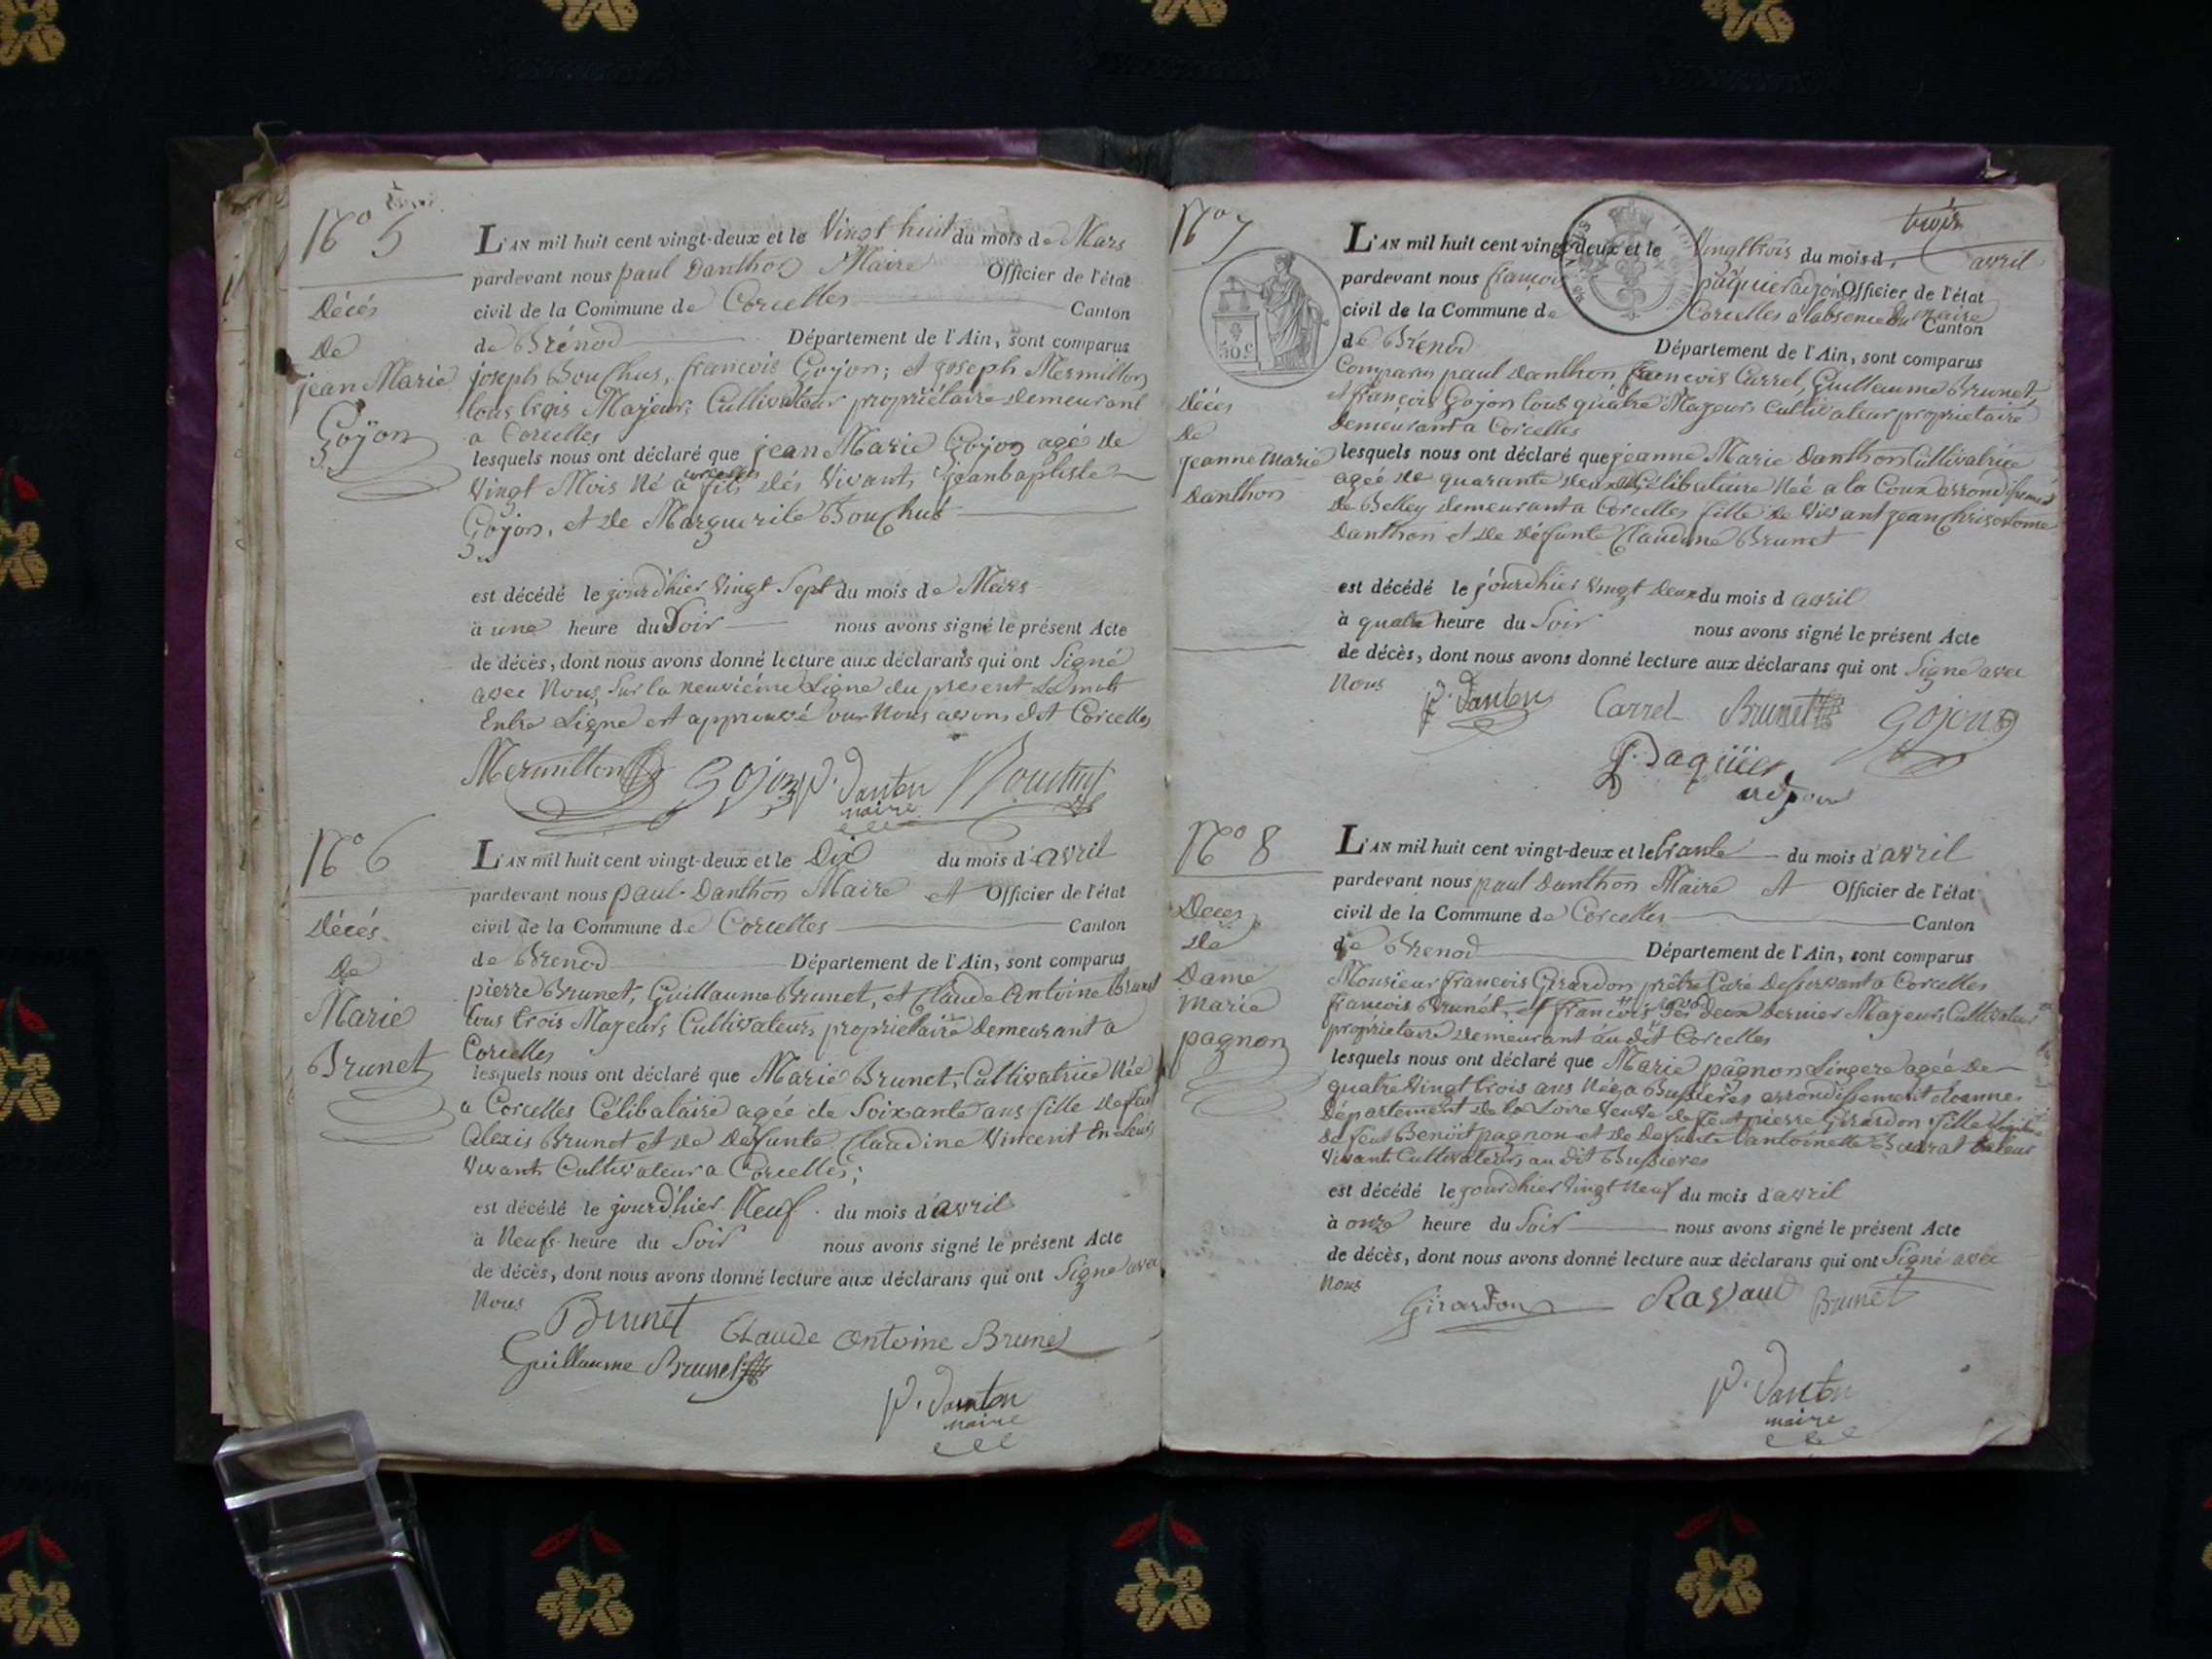 N° 5
Décés
De
jean Marie
Gojon
L'AN mil huit cent vingt-deux et le Vingt huit du mois de Mars
pardevant nous paul Danthon Maire Officier de l'état
civil de la Commune de Corcelles Canton
de Brénod Département de l'Ain, sont comparus
joseph Bouchus, francois Gojon; et joseph Mermillon
tous trois Majeurs Cultivateur propriétaire Demeurant
a Corcelles
lesquels nous ont déclaré que jean Marie Gojon agé de
corcelles
Vingt Mois Né a fils dés Vivants jeanbaptiste
Gojon, et De Marguerite Bouchus
est décédé le jourd'hier Vingt Sept du mois de Mars
à une heure du Soir nous avons signé le présent Acte
de décès, dont nous avons donné lecture aux déclarans qui ont Signé
avec Nous, Sur la neuviéme Ligne du present Le mot
Entre Ligne est approuvé oux Nous avons dit Corcelles
Mermillon Gojon P. Danton Bouchus
maire
N° 6
Décés
De
Marie
Brunet
L'AN mil huit cent vingt-deux et le Dix du mois d'avril
pardevant nous paul Danthon Maire et Officier de l'état
civil de la Commune de Corcelles Canton
de Brenod Département de l'Ain, sont comparus
pierre Brunet, Guillaume Brunet, et Claude Antoine Brunet
tous trois Majeurs Cultivateurs propriétaire Demeurant a
Corcelles
lesquels nous ont déclaré que Marie Brunet, Cultivatrice Née
a Corcelles Célibataire agée de Soixante ans fille De feu
Alexis Brunet et De Defunte Claudine Vincent En Leurs
Vivant Cultivateur a Corcelles;
est décédé le jourd'hier Neuf du mois d'avril
à Neufs heure du Soir nous avons signé le présent Acte
de décès, dont nous avons donné lecture aux déclarans qui ont Signé avec
Nous
Brunet Claude Antoine Brunet
Guillaume Brunet
P. Danton
maire
N° 7
Décés
De
jeanne Marie
Danthon
50 c
trois
L'AN mil huit cent vingt-deux et le Vingttrois du mois d avril
pardevant nous françois paquier adjoint Officier de l'état
civil de la Commune de Corcelles a l'absence du maire Canton
de Brénod Département de l'Ain, sont comparus
Comparus paul Danthon francois Carrel, Guillaume Brunet,
et françois Gojon tous quatre Majeurs Cultivateur propriétaire
Demeurant a Corcelles
lesquels nous ont déclaré que jeanne Marie Danthon Cultivatrice
agée De quarante deux Célibataire Née a la Coux arrondissement
De Belley Demeurant a Corcelles fille De Vivant jean Chrisostome
Danthon et De Défunte Claudine Brunet
est décédé le jourdhier Vingt Deux du mois d avril
à quatre heure du Soir nous avons signé le présent Acte
de décès, dont nous avons donné lecture aux déclarans qui ont Signé avec
Nous
P. Danton Carrel Brunet Gojon
f. Paquier
adjoint
N° 8
Deces
De
Dame
Marie
pagnon
L'AN mil huit cent vingt-deux et le trante du mois d'avril
pardevant nous paul Danthon Maire et Officier de l'état
civil de la Commune de Corcelles Canton
de Brenod Département de l'Ain, sont comparus
Monsieur francois Girardon prêtre Curé Desservant a Corcelles
francois Brunet, et francois les deux Dernier Majeurs Cultivateur
propriétaire Demeurant au dit Corcelles
lesquels nous ont déclaré que Marie pagnon Lingere agée De
quatre Vingt trois ans Née a Bussieres arrondissement
Département De la Loire Veuve de feu pierre Girardon fille
De feu Benoit pagnon et De Defunte antoinette leur
Vivant Cultivateurs au dit Bussieres
est décédé le jourdhier Vingt Neuf du mois d'avril
à onze heure du Soir nous avons signé le présent Acte
de décès, dont nous avons donné lecture aux déclarans qui ont Signé avec
Nous
Girardon Ravaud Brunet
P. Danton
maire